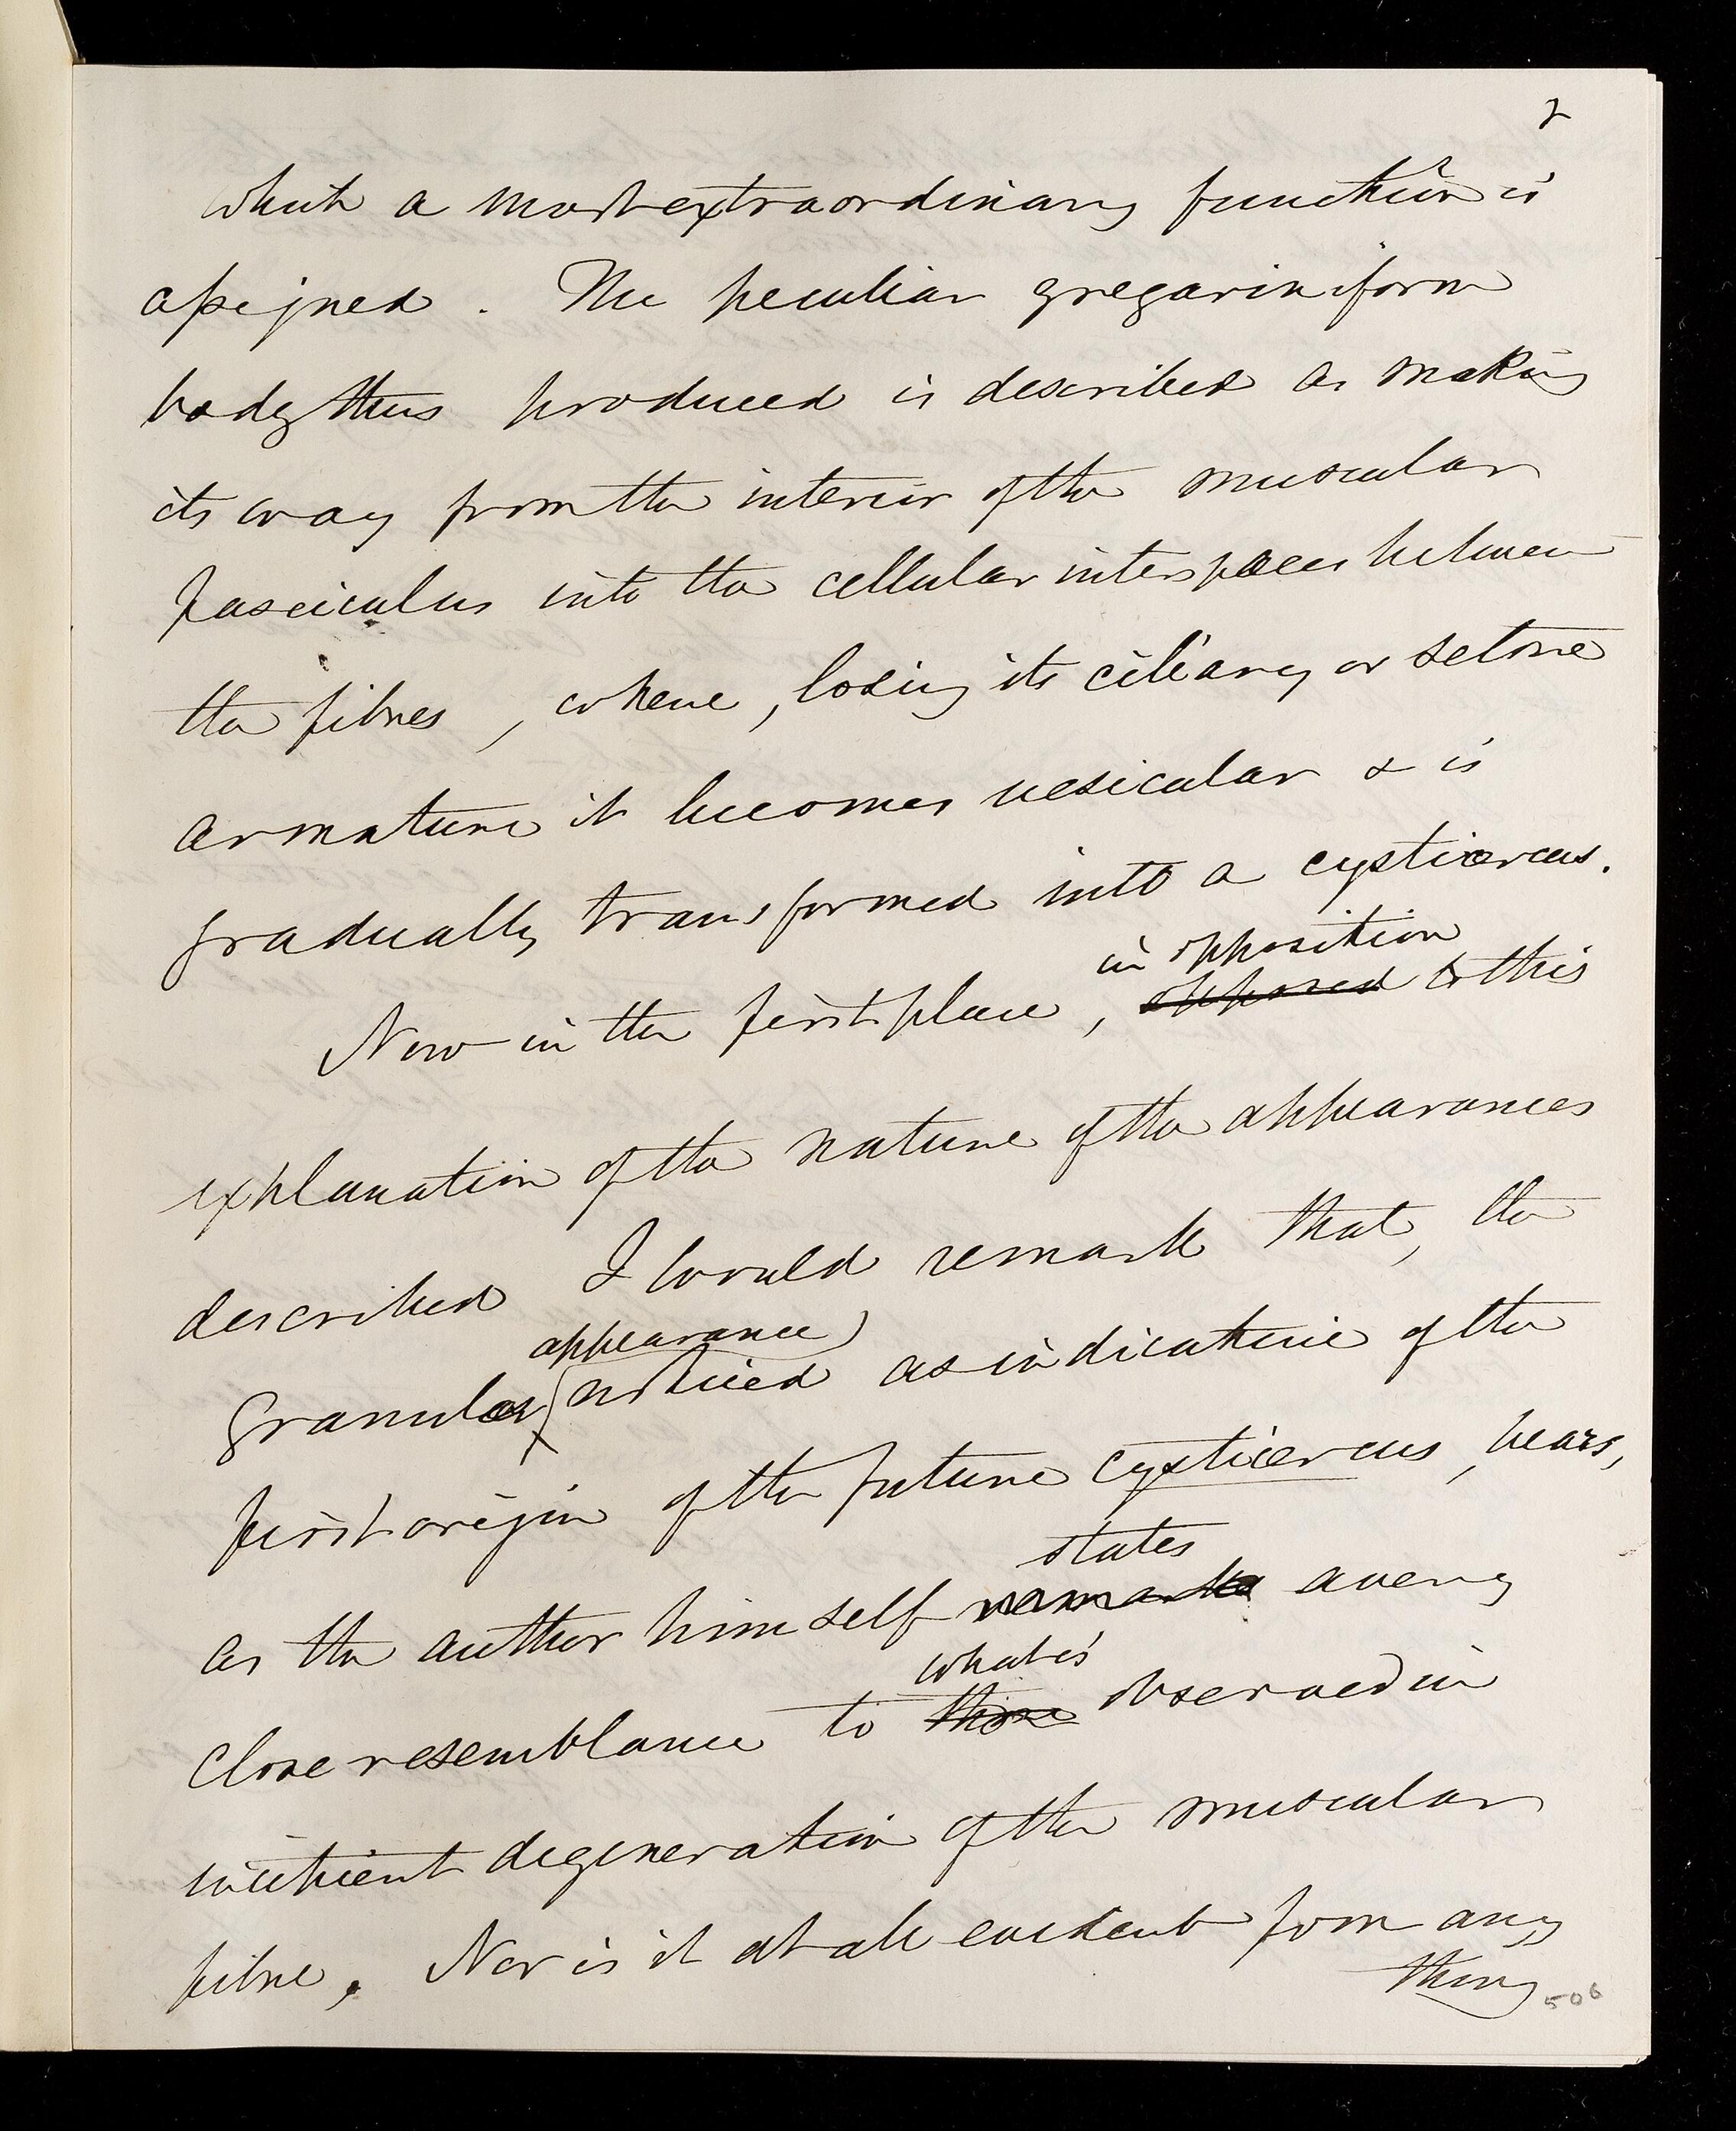 2
which a most extraordinary function is
assigned. The peculiar gregariniform
body thus produced is described as making
its way from the interior of the muscular
fasciculus into the cellular interspaces between
the fibres, where, losing its ciliary or setose
armature it becomes vesicular & is
gradually transformed into a cysticercus.
in opposition
Now in the first place, opposed to this
explanation of the nature of the appearances
described I would remark that, the
appearance
granular noticed as indicative of the
first origin of the future cysticercus, bears,
states
as the author himself remarks a very
what is
close resemblance to those observed in
incipient degeneration of the muscular
fibre. Nor is it at all evident from any
thing
506